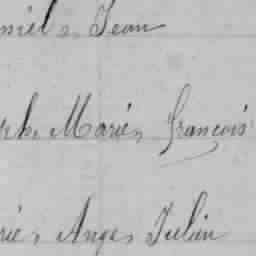 niel, Jean
ph, Marie, françois
rie, Ange, Julien